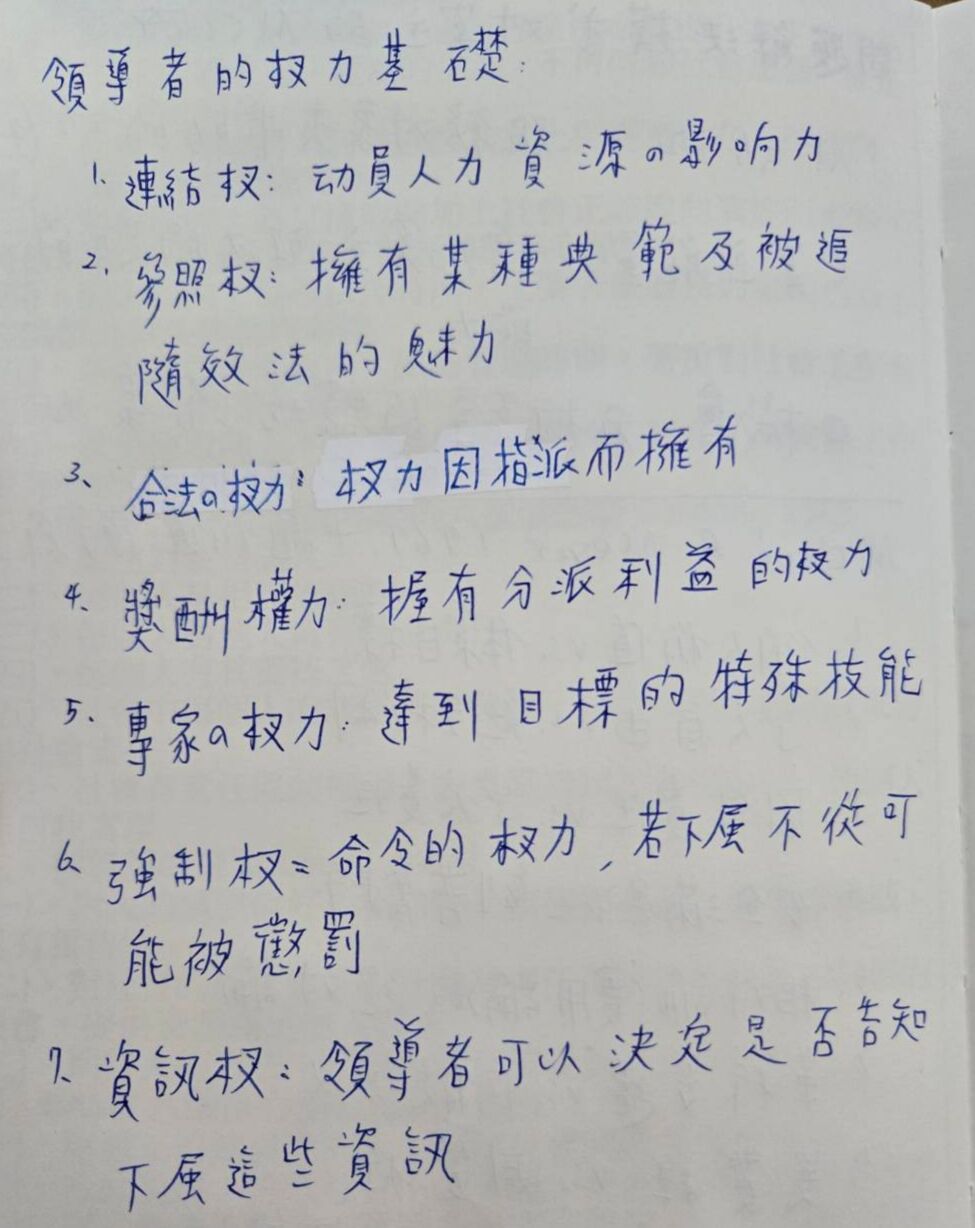 領導者的权力基礎:
1. 連結权: 动員人力資源の影响力
2. 參照权: 擁有某種典範及被追
隨效法的魅力
3、合法の权力: 权力因指派而擁有
4、獎酬權力: 握有分派利益的权力
5、專家の权力: 達到目標的特殊技能
6、強制权: 命令的权力,若下属不從可
能被懲罰
7、資訊权: 領導者可以決定是否告知
下属這些資訊